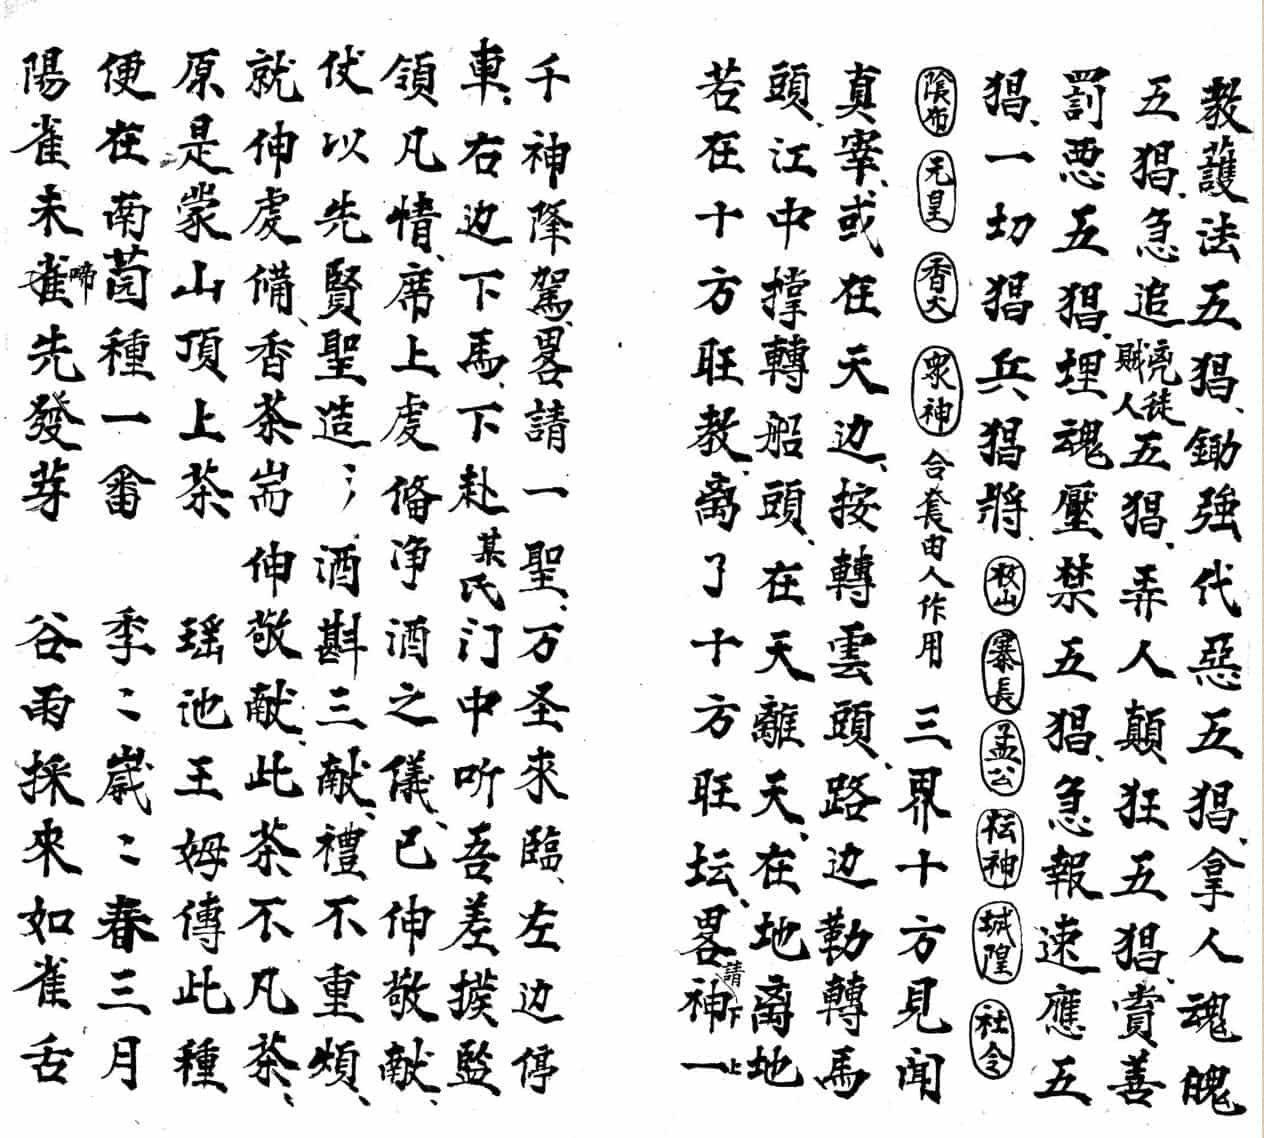 教護法五猖、鋤強代惡五猖、拿人魂魄
五猖、急追賊人兇徒五猖、弄人顛狂五猖、賞善
罰悪五猖、埋魂壓禁五猖、急報速應五
猖、一切猖兵猖将、枚山 寨長 孟公 耘神 城隍 社令
陰布 元皇 香火 衆神 合套由人作用 三界十方見聞
真宰、或在天边、按轉雲頭、路边勒轉馬
頭、江中撑轉船頭、在天離天、在地离地
若在十方旺教、离了十方旺坛、畧請神下一上
千神降駕、畧請一聖、万圣來臨、左边停
車、右边下馬、下赴某氏门中听吾差撥監
領凡情、席上虔俻净酒之儀、已伸敬献、
伏以先賢聖造〻酒斟三献、禮不重煩、
就伸虔備、香茶耑伸敬献、此茶不凡茶、
原是蒙山頂上茶 瑶池王姆傳此種
便在南园種一畨 季〻歲〻春三月
陽雀未啼雀先發芽 谷雨採來如雀舌